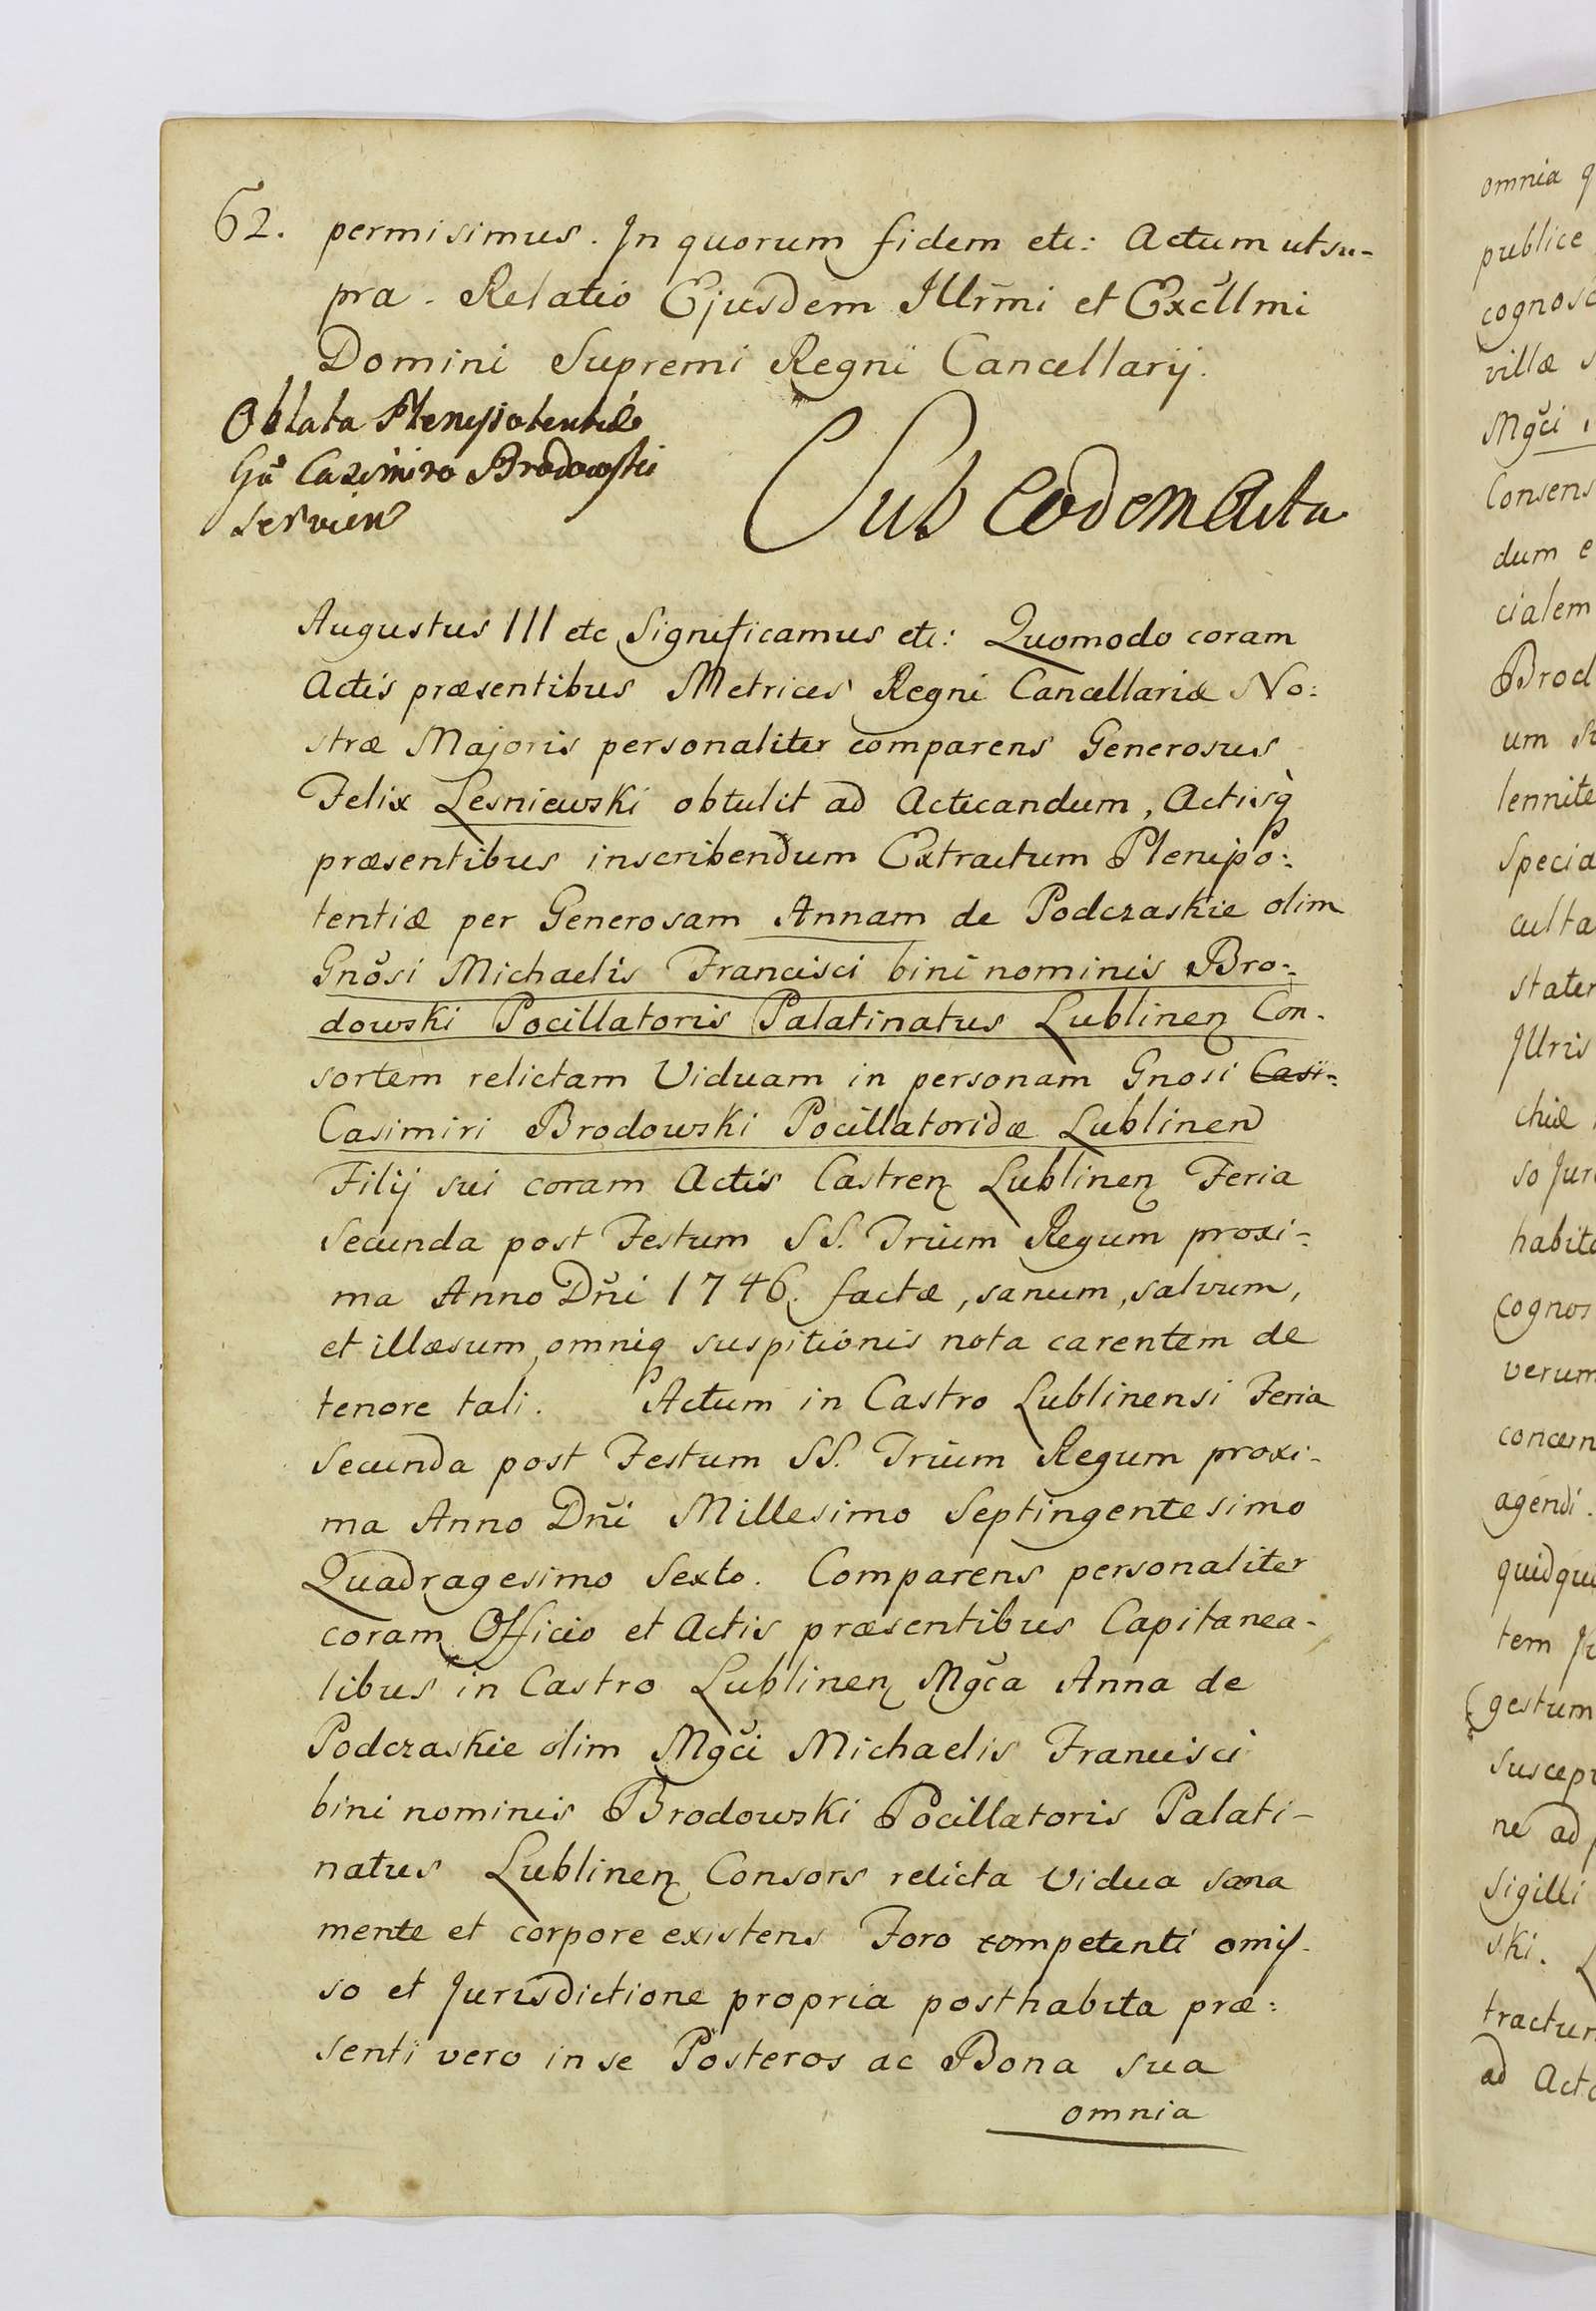 62. permisimus. In quorum fidem etc: Actum ut su-
pra. Relatio Ejusdem Illr̃mi et Excĕllmi
Domini Supremi Regni Cancellarij.
Oblata Plenipotentiæ
Gň Casimiro Brodowski
servien
Sub Eodem Acta
Augustus III etc Significamus etc: Quomodo coram
Actis præsentibus Metrices Regni Cancellariæ No:
stræ Majoris personaliter comparens Generosus
Felix Lesniewski obtulit ad Acticandum, Actisq̀
præsentibus inscribendum Extractum Plenipo:
tentiæ per Generosam Annam de Podczaskie olim
Gnŏsi Michaelis Francisci bini nominis Bro-
dowski Pocillatoris Palatinatus Lublinen Con-
sortem relictam Viduam in personam Gnosi Casi-
Casimiri Brodowski Pocillatoridæ Lublinen
Filij sui coram Actis Castren Lublinen Feria
Secunda post Festum SS. Trium Regum proxi-
ma Anno Dňi 1746. factæ, sanum, salvum,
et illæsum, omniq suspitionis nota carentem de
tenore tali. Actum in Castro Lublinensi Feria
Secunda post Festum SS. Trium Regum proxi-
ma Anno Dňi Millesimo Septingentesimo
Quadragesimo Sexto. Comparens personaliter
coram Officio et Actis præsentibus Capitanea-
libus in Castro Lublinen Mgča Anna de
Podczaskie olim Mgči Michaelis Francisci
bini nominis Brodowski Pocillatoris Palati-
natus Lublinen Consors relicta Vidua sana
mente et corpore existens Foro competenti omis-
so et Jurisdictione propria posthabita præ:
senti vero in se Posteros ac Bona sua
omnia
omnia q
publice
cognosc
villæ s
Mgči
Consens
dum e
cialem
Brod
um
lennite
Specia
culta
stater
Illris
chiæ
so Jur
habita
cognos
verum
concern
agendi.
quidqu
tem
gestum
suscep
ne ad
Sigilli
ski.
tractum
ad Acta